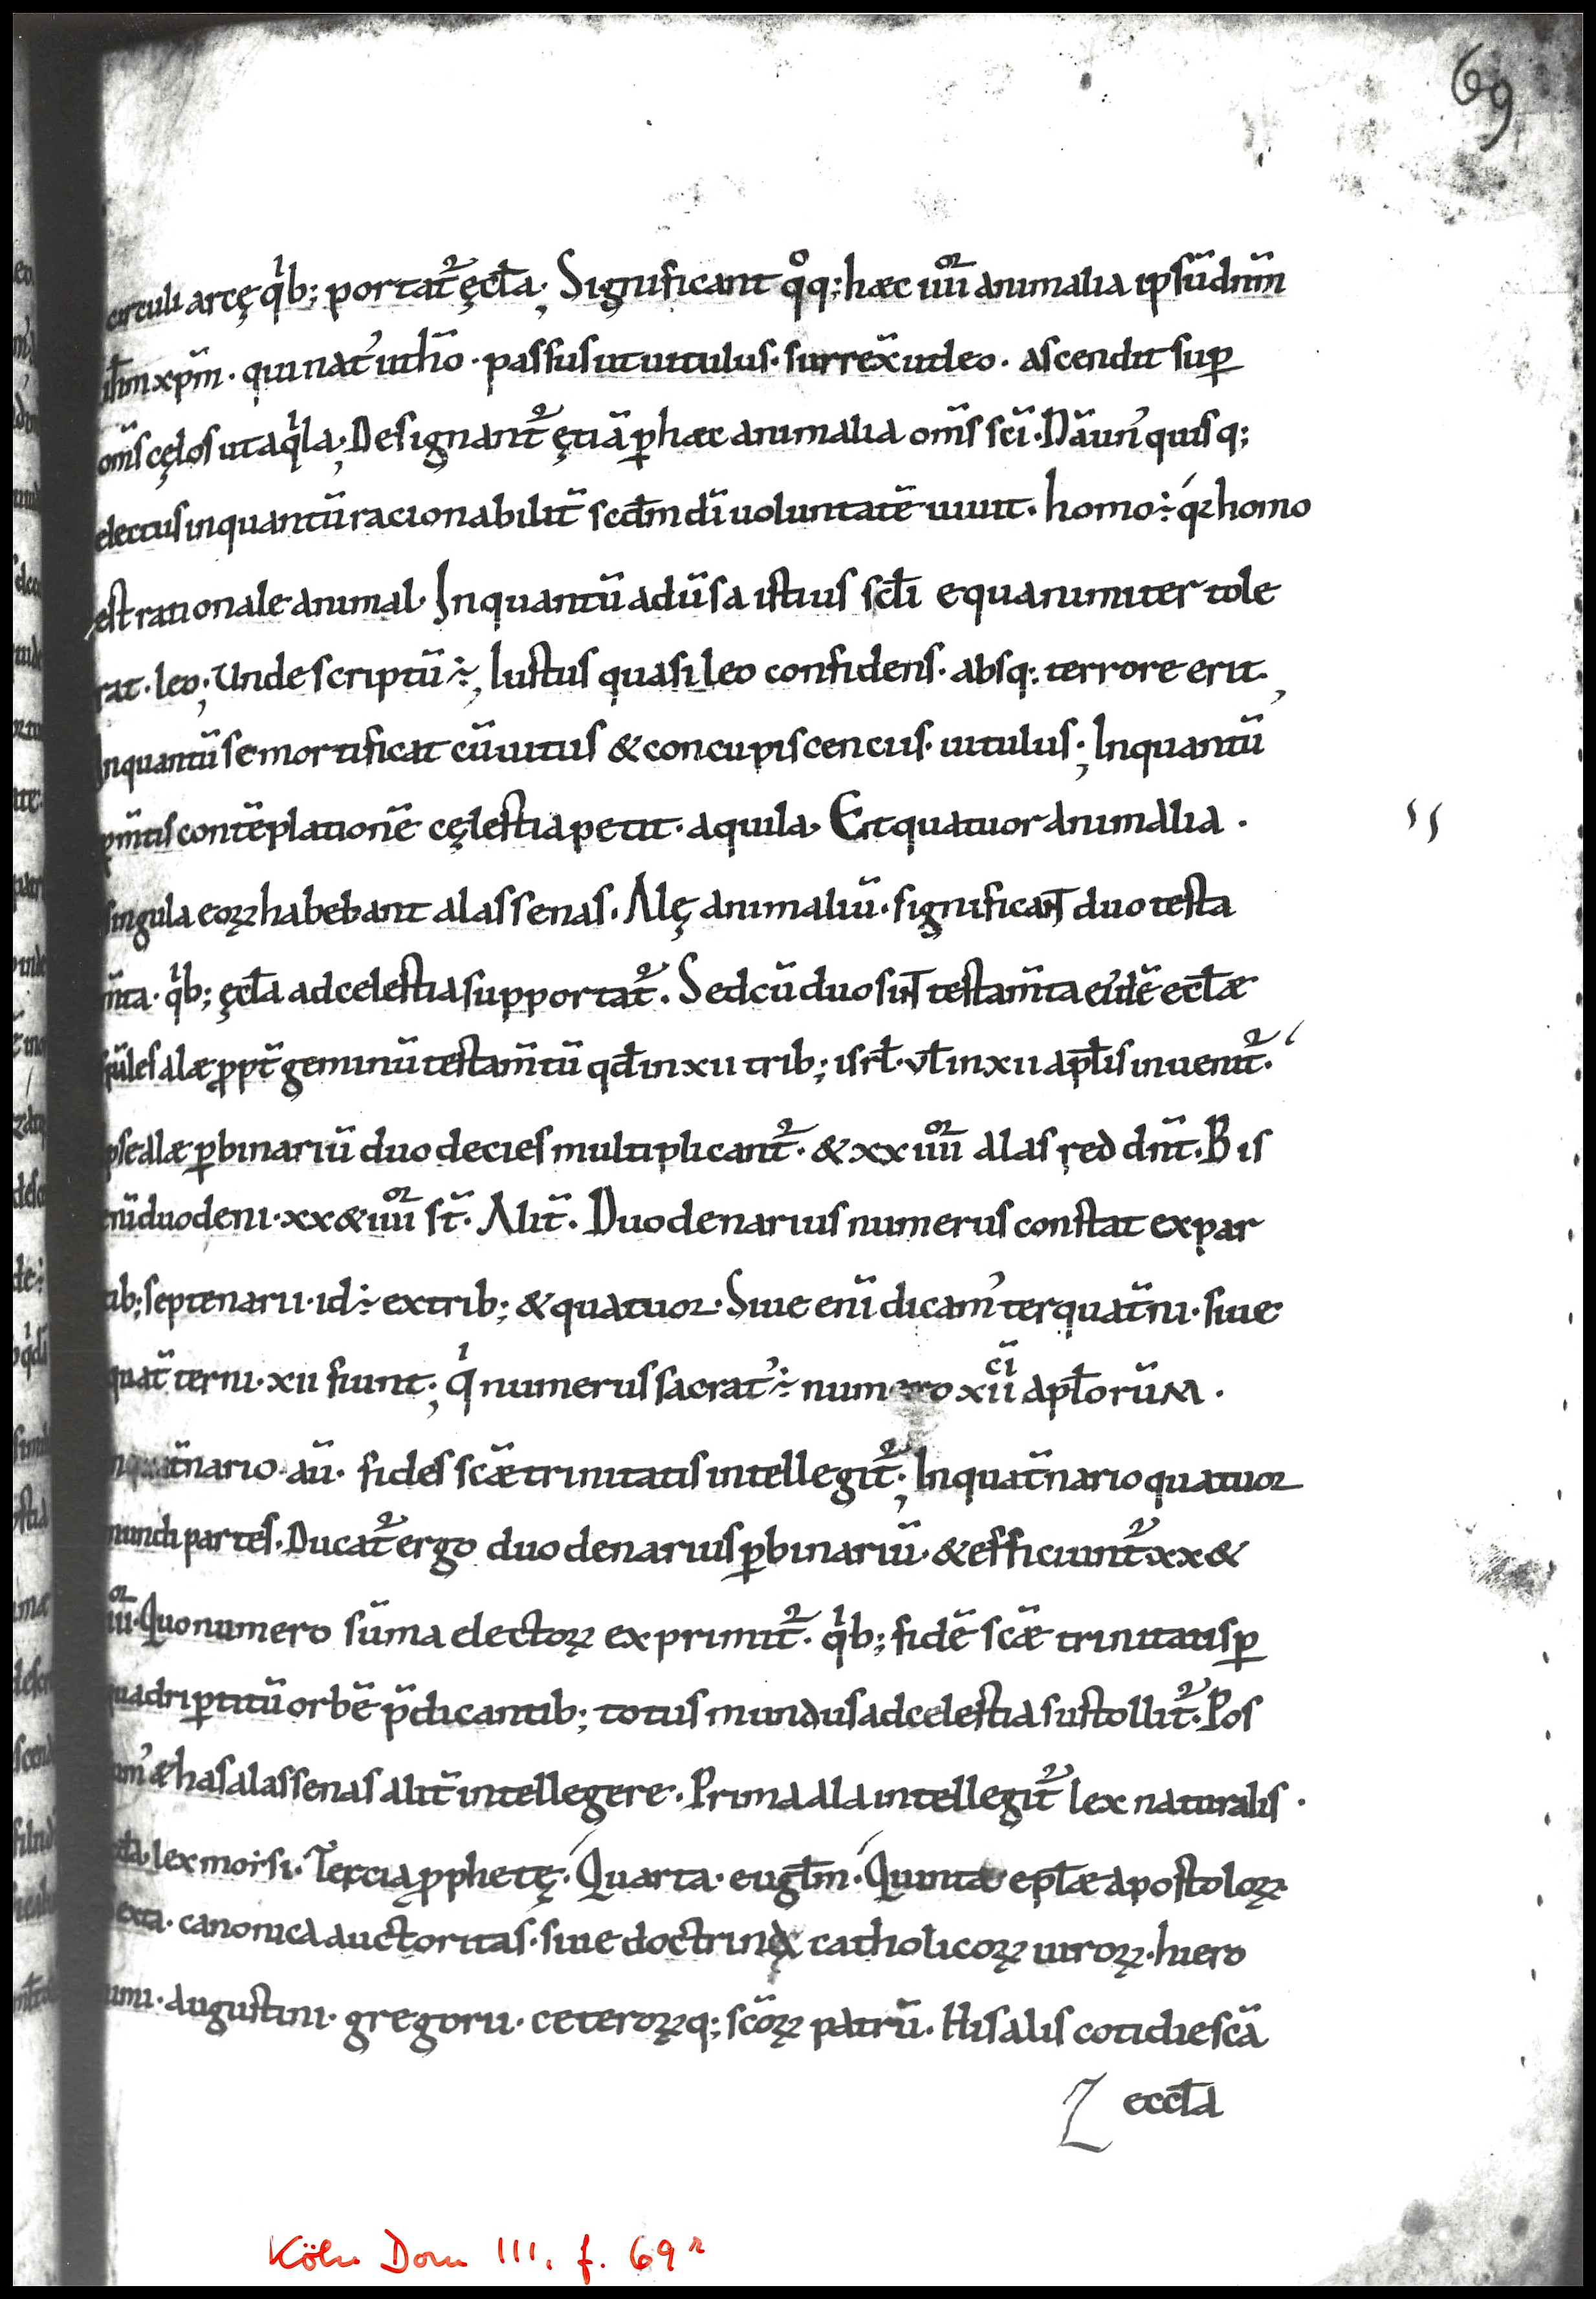 69
circuli arcę qͥb; portat᷑ ęcl̄a; Significant qͦq; hæc iiii᷑ animalia ipsū dn̄m
ih̄m xp̄m · qui nat᾽ ut hō · passus ut uitulus · surrex̄ ut leo · ascendit sup̱
om̄s cęlos ut aqͥla; Designant᷑ ętiā p̱ hæc animalia om̄s sc̄i · Nā un᾽quisq;
electus inquantū racionabilit̄ scd̄m dī uoluntatē uiuit · homo ÷ q2 homo
est rationale animal · Inquantū aduūsa istius scl̄i equanimiter tole
rat · leo; Unde scriptū ÷; Iustus quasi leo confidens · absq; terrore erit;
Inquantū se mortificat cū uitiis & concupiscenciis · uitulus; Inquantū
p̱ m̄tis contēplationē cęlestia petit · aquila · Et quatuor animalia ·
singula eoꝝ habebant alas senas · Alę animaliū · significant duo testa
m̄ta · qͥb; ęcl̄a ad celestia supportat᷑ · Sed cū duo sint testam̄ta ei᾽dē ecl̄æ
alæ ꝓpt̄ geminū testam̄tū qd̄ in xii trib; isrl̄ · vl̄ in xii apl̄is inuenit᷑ ·
ipse alæ p̱ binariū duodecies multiplicant᷑ · & xx iiii᷑ alas reddn̄t · Bis
enī duodeni · xx & iiii᷑ st̄ · Alit̄ · Duodenarius numerus constat ex par
tib; septenarii · id ÷ ex trib; & quatuor · Siue enī dicam᾽ ter quat̄ni · siue
quat̄ terni · xii fiunt; qͥ numerus sacrat᾽ ÷ numero xiicī apl̄orūm ·
In quat̄nario · aū · fides sc̄æ trinitatis intellegit᷑; In quat̄nario quatuor
mundi partes · Ducat᷑ ergo duodenarius p̱ binariū · & efficiunt᷑ xx &
iiii᷑ · Quo numero sūma electoꝝ exprimit᷑ · qͥb; fidē sc̄æ trinitatis p̱
quadrip̱titū orbē p̄dicantib; totus mundus ad celestia sustollit᷑ · Pos
sum᾽ & has alas senas alit̄ intellegere · Prima ala intellegit᷑ lex naturalis ·
scd̄a · lex moisi · Tercia ꝓphetę · Quarta · eugl̄m · Quinta epl̄æ apostoloꝝ
Sexta · canonica auctoritas · siue doctrinæ catholicoꝝ uiroꝝ · hiero
nimi · augustini · gregorii · ceteroꝝq; sc̄oꝝ patrū · His alis cotidie sc̄a
eccl̄a
Köln Dom 111, f. 69r